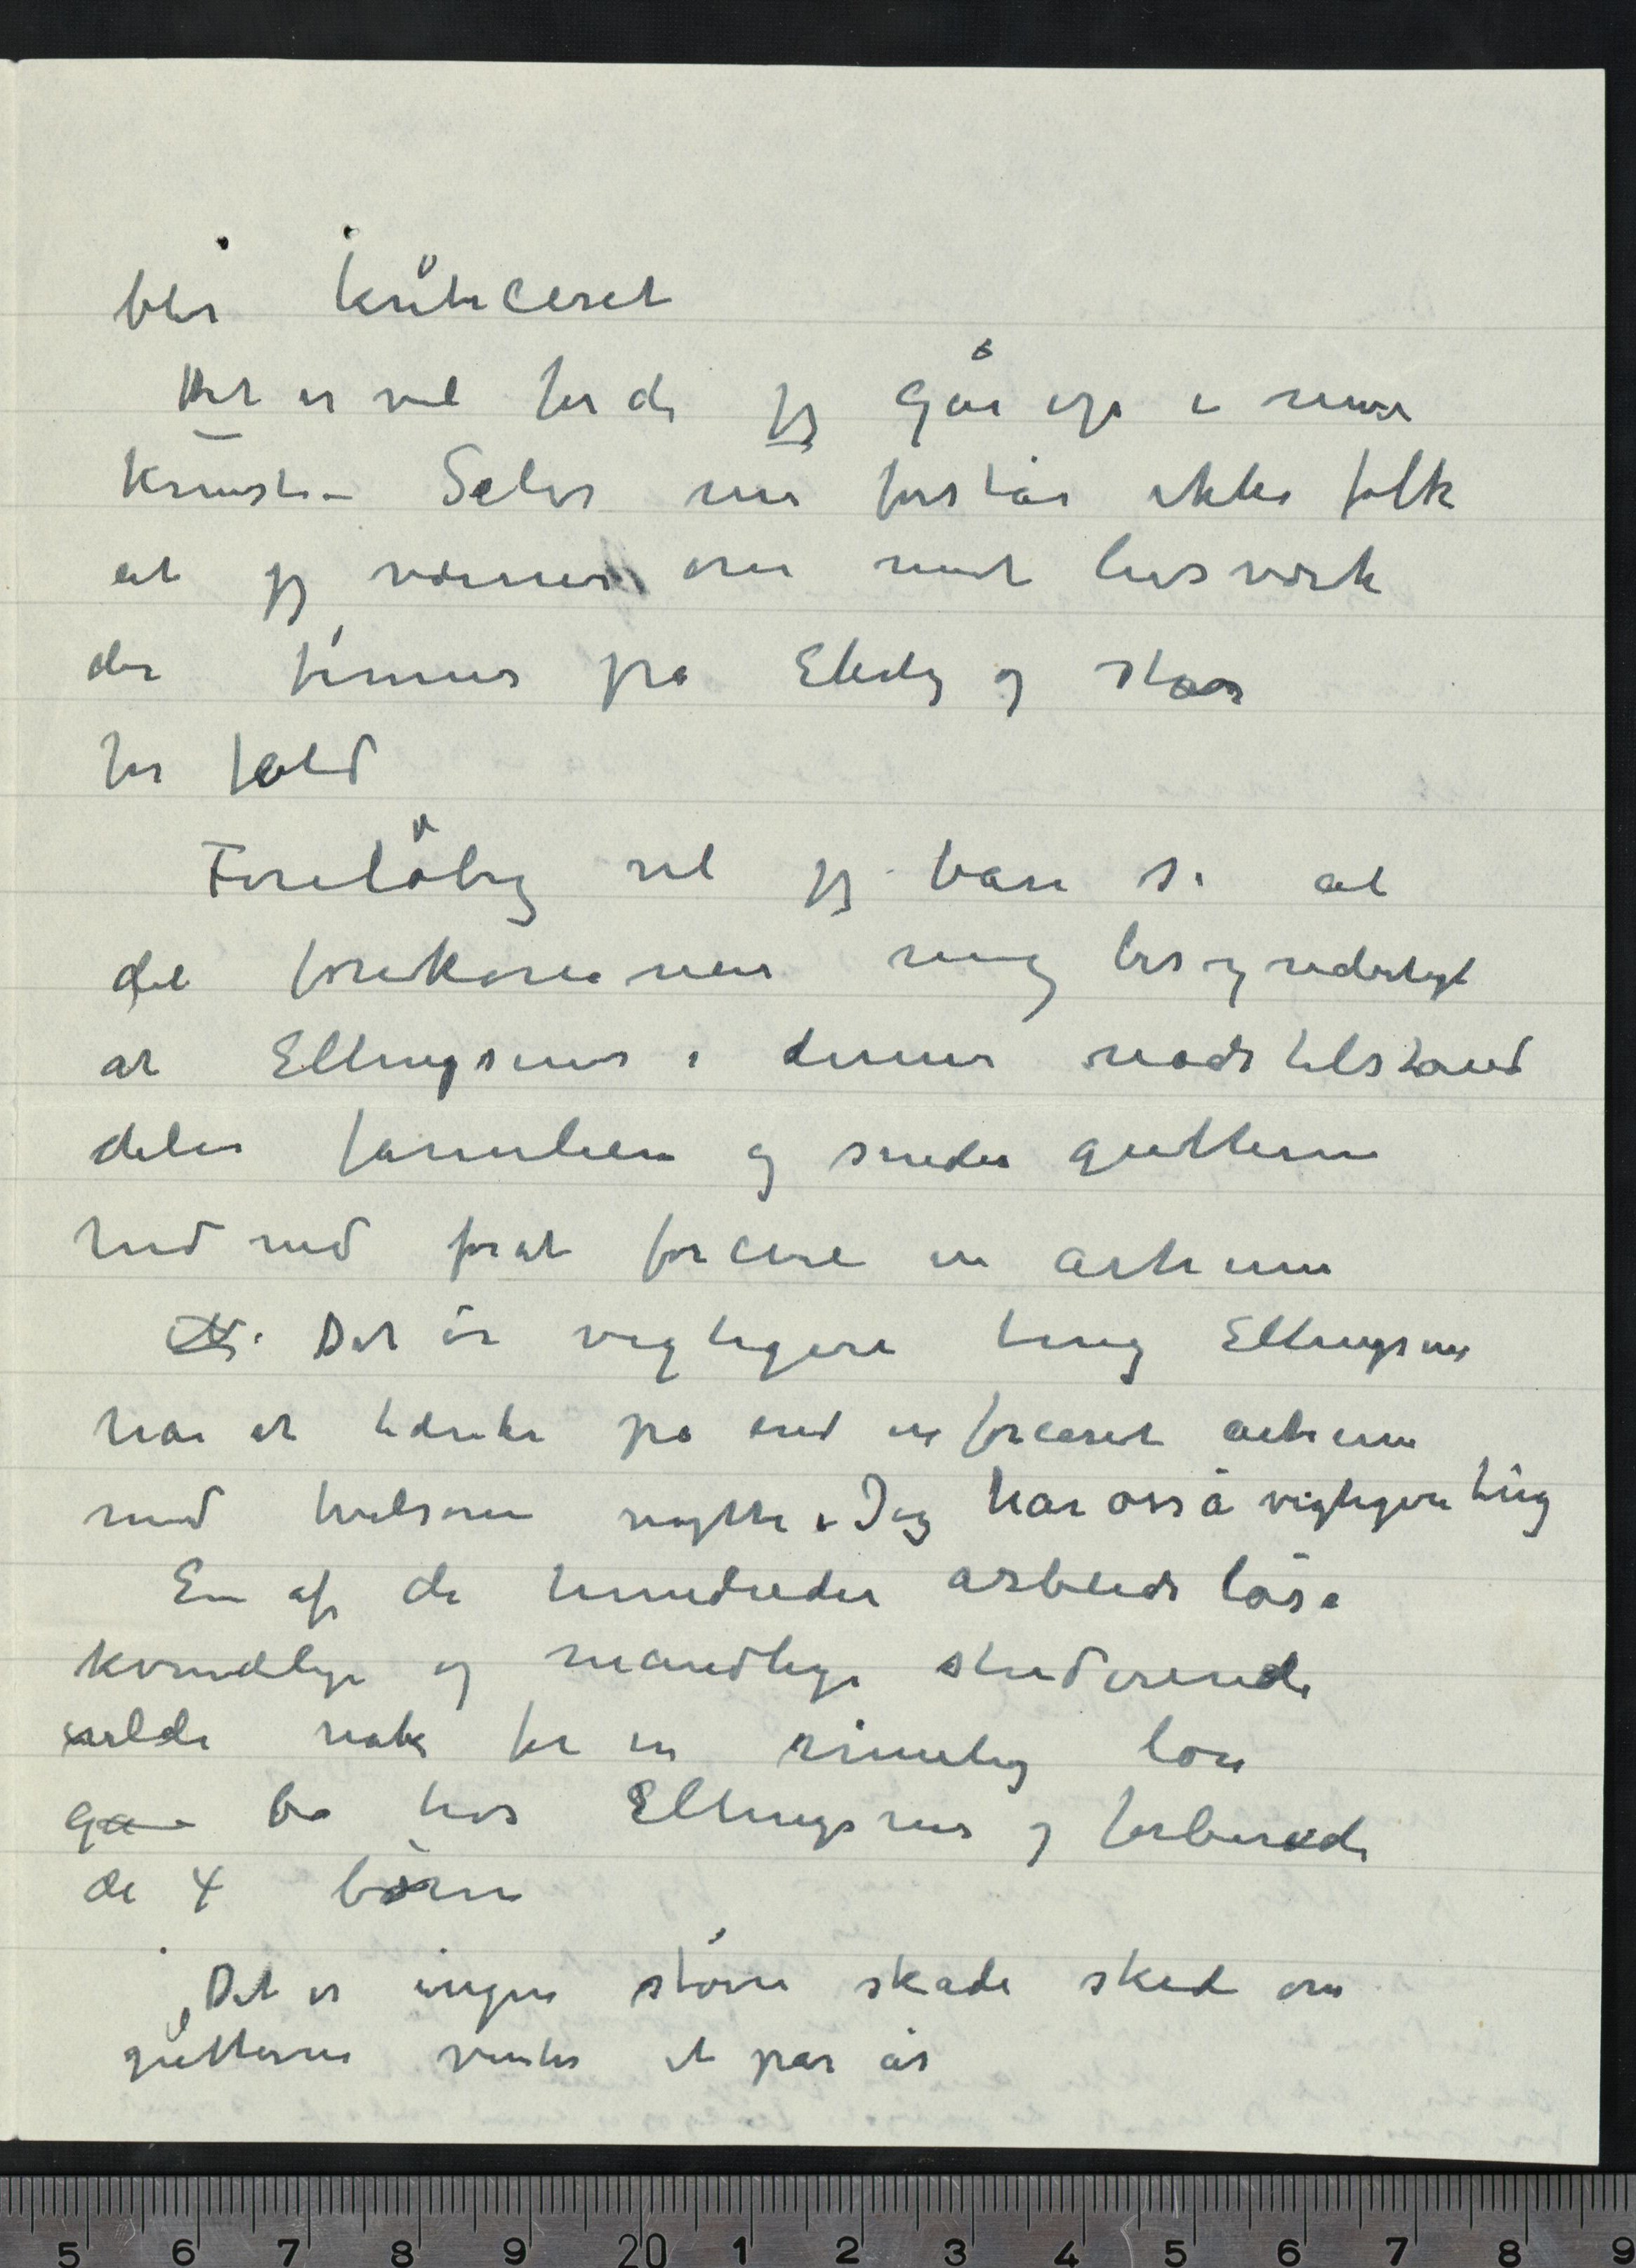 blir kriticeret
Det er vel fordi jeg går op i min
kunst. – Selv nu forstår ikke folk
at jeg værner om mit livsværk
der finnes på Ekely og står
for fald
Foreløbig vil jeg bare si at
det forekommer mig besynderligt
at Ellingsens i denne nødstilstand
deler familien og sender guttene
hid ned forat forcere en artium
Det er vigtigere ting Ellingsens
har at tænke på end en forceret artium
med tvilsom nytte. Jeg har også vigtigere ting
En af de hundreder arbeidsløse
kvindelige og mandlige studerende
vilde nok for en rimelig løn
bo hos Ellingsens og forberede
de 4 børn
Det er ingen større skade sked om
gutterne venter et par år
5 6 7 8 9 20 1 2 3 4 5 6 7 8 9